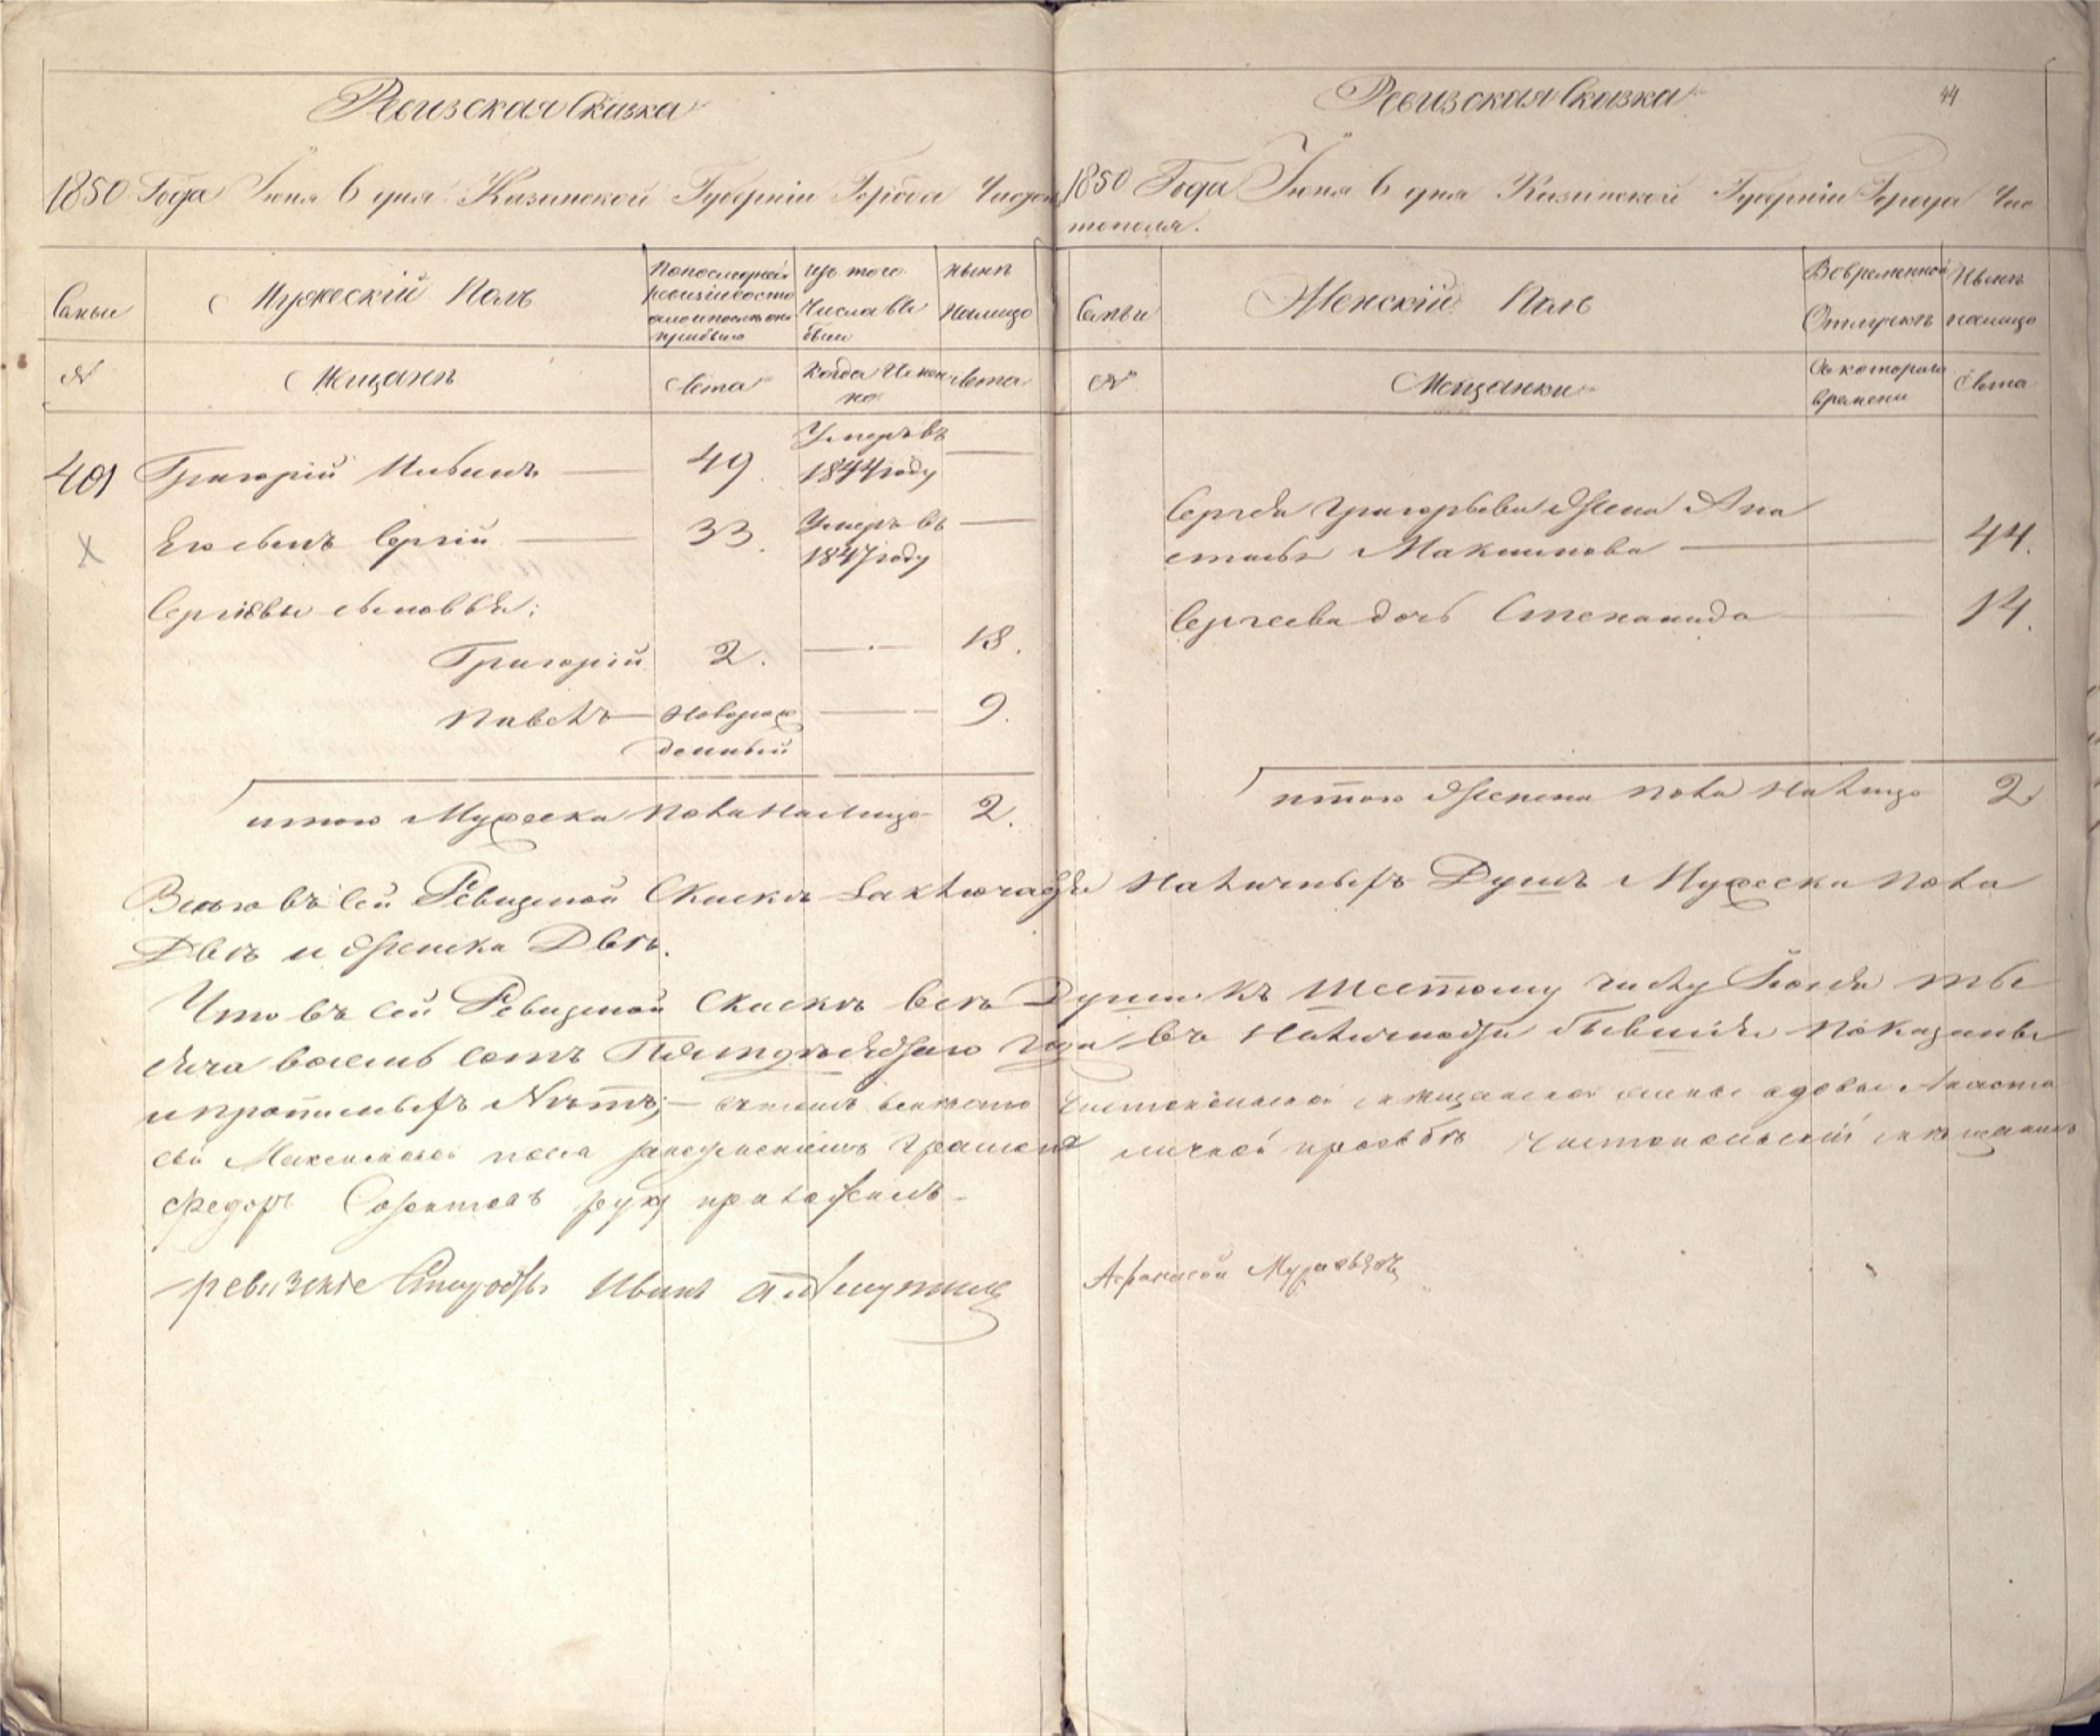 Ревизская Сказка
1850 Года Іюня 6 дня Казанской Губерніи Города Чисто
Семьи
Мужеской Полъ
По последней ревизіи состояло и после оной прибыло
Изъ того Числа вы были
Нынѣ Налицо
№
Мещанѣ
Лета
Когда Именно
Лета
401 Григорій Ивановъ 49. Умеръ въ 1844 году
Его сынъ Сергій 33. Умеръ въ 1847 году
Сергіевы сыновья:
Григорій 2. 18.
Павелъ Новорож
денный 9.
итого Мужеска Пола Налицо 2.
Ревизская Сказка 44
1850 Года Іюня 6 дня Казанской Губерніи Города Чис
тополя.
Семьи
Женскій Полъ
Во временной Отлучкѣ
Нынѣ налицо
№
Мещанки
Съ котораго времени
Лета
Сергея Григорьева Жена Ана
стасья Максимова 44.
Сергеева дочь Степанида 14.
итого Женска Пола На Лицо 2
Всего въ сей Ревизской Скаскѣ Заключается Наличныхъ Душъ Мужеска Пола
Двѣ и Женска Двѣ.
Что въ сей Ревизской Скаскѣ всѣ Души къ Шестому числу Іюня ты
сяча восемь сотъ Пятдесятаго года въ Наличности бывшія Показаны
и прописныхъ Нѣтъ; вместо Чистопольской мещанской жены вдовы Анаста
сьи Максимовой Грамоте личной прозьбѣ Чистопольскій мещанинъ
Федоръ руку приложилъ
ревизские Сказки Иванъ
Афанасей Муравьевъ